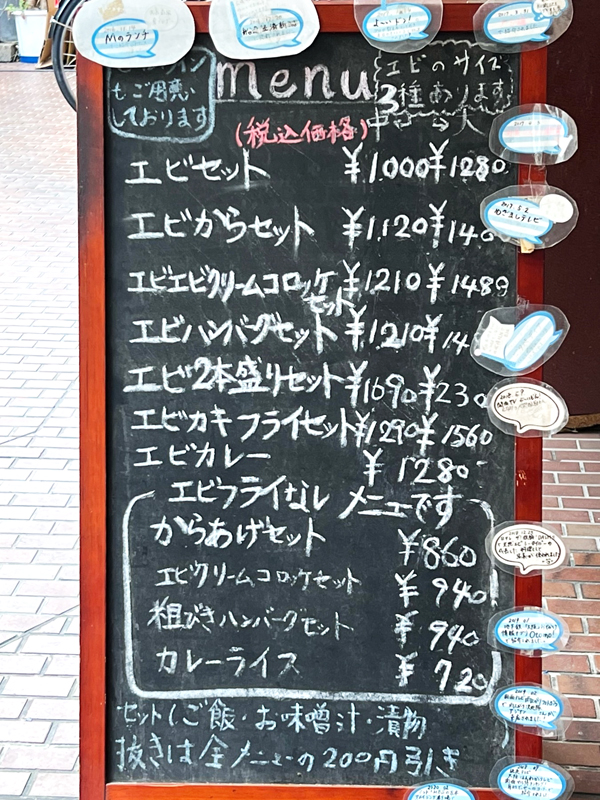 Mのランチ
よーいドン!
もご用意
しております
menu
エビのサイズ
3種あります
中 大
(税込価格)
エビセット ¥1000 ¥1280
エビからセット ¥1120
エビエビクリームコロッケセット ¥1210 ¥1480
エビハンバーグセット ¥1210
エビ2本盛りセット ¥1690
エビカキフライセット ¥1290 ¥1560
エビカレー ¥1280
エビフライなしメニューです
からあげセット ¥860
エビクリームコロッケセット ¥940
粗びきハンバーグセット ¥940
カレーライス ¥720
セット(ご飯・お味噌汁・漬物
抜きは全メニューの200円引き
2017.5.2
めざましテレビ